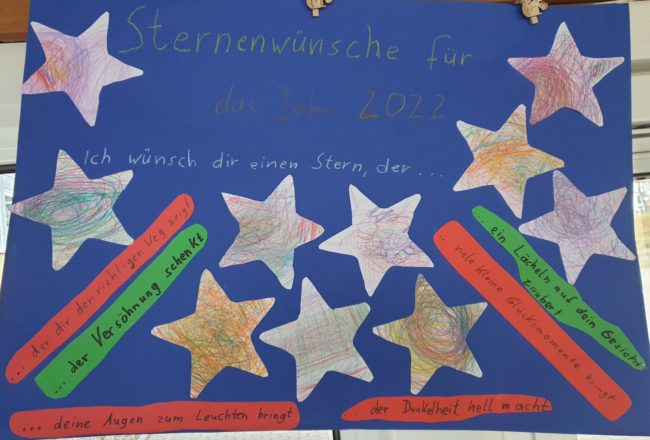 Sternenwünsche für
das Jahr 2022
Ich wünsch dir einen Stern, der ...
... der dir den richtigen Weg zeigt
... der Versöhnung schenkt
... ein Lächeln auf dein Gesicht
zaubert
... viele kleine Glücksmomente bringt
... deine Augen zum Leuchten bringt
... der Dunkelheit hell macht